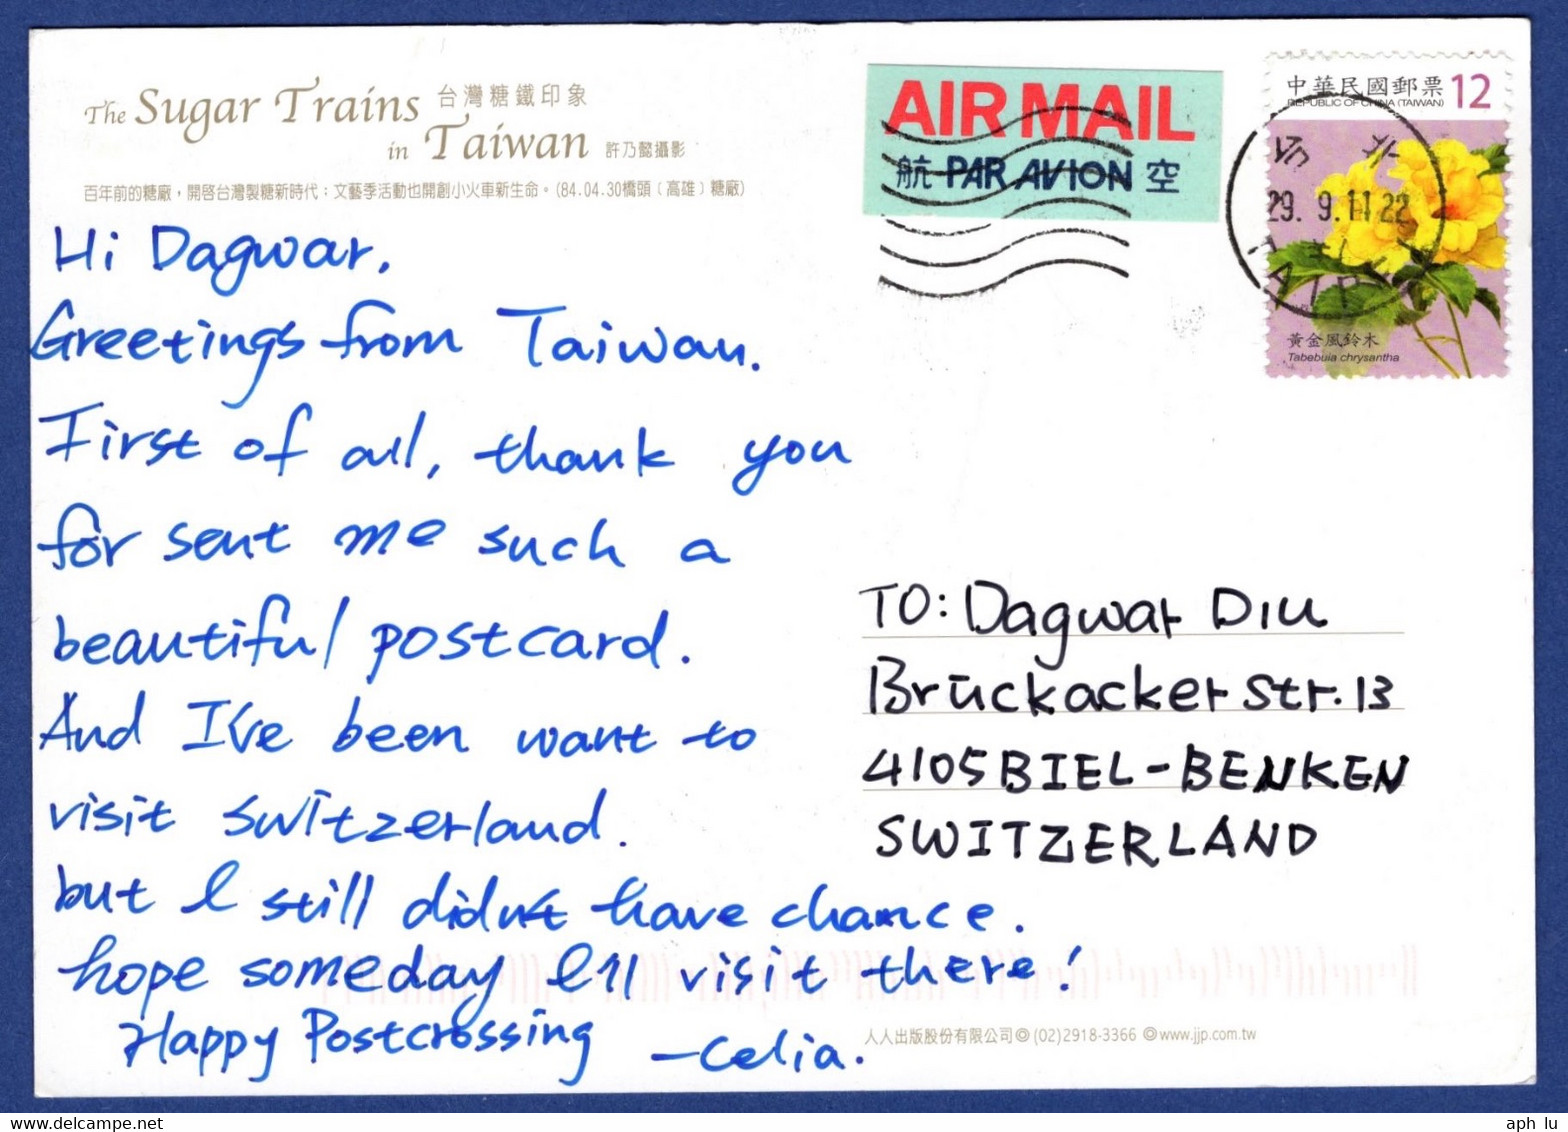 The Sugar Trains 台灣糖鐵印象
in Taiwan 許乃懿攝影
百年前的糖廠，開啓台灣製糖新時代；文藝季活動也開創小火車新生命。(84.04.30橋頭﹝高雄﹞糖廠)
Hi Dagwar,
Greetings from Taiwan.
First of all, thank you
for sent me such a
beautiful postcard.
And I've been want to
visit switzerland.
but I still didn't have chance.
hope someday I'll visit there!
Happy Postcrossing
—Celia.
AIR MAIL
航 PAR AVION 空
中華民國郵票 12
REPUBLIC OF CHINA (TAIWAN)
29. 9.11 22
TAIPEI
黃金風鈴木
Tabebuia chrysantha
TO: Dagwar DIU
Brückacker Str. 13
4105 BIEL-BENKEN
SWITZERLAND
人人出版股份有限公司◎(02)2918-3366 ◎www.jjp.com.tw
aph_lu